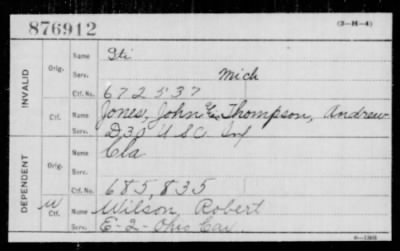 876912 (3-H-4)
INVALID
Orig. Name Sti
Serv. Mich
Ctf. No. 672537
Ctf. Name Jones, John G. Thompson, Andrew
Serv. D30 USC Inf
DEPENDENT
Orig. Name Cla
Serv.
Ctf. No. 685,835
W Ctf. Name Wilson, Robert
Serv. E-2-Ohio Cav.